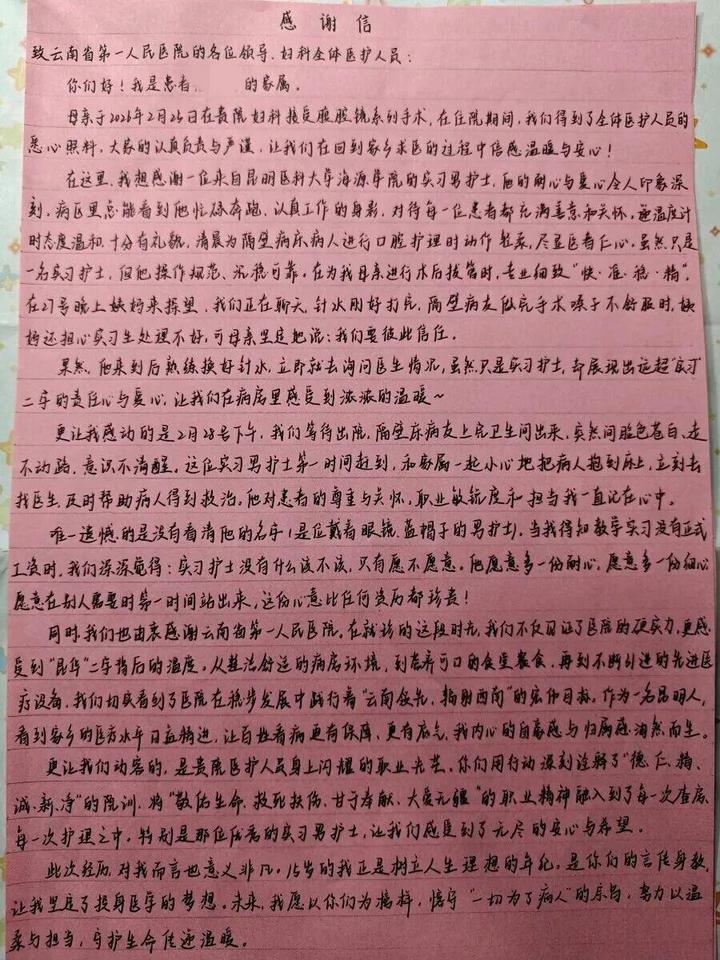 感谢信
致云南省第一人民医院的各位领导、妇科全体医护人员：
你们好！我是患者 的家属。
母亲于2026年2月26日在贵院妇科接受腹腔镜系列手术，在住院期间，我们得到了全体医护人员的
悉心照料，大家的认真负责与严谨，让我们在回到家乡求医的过程中倍感温暖与安心！
在这里，我想感谢一位来自昆明医科大学海源学院的实习男护士，他的耐心与爱心令人印象深
刻。病区里总能看到他忙碌奔跑、认真工作的身影，对待每一位患者都充满善意和关怀，递温度计
时态度温和、十分有礼貌，清晨为隔壁病床病人进行口腔护理时动作轻柔，尽显医者仁心。虽然只是
一名实习护士，但他操作规范、沉稳可靠。在为我母亲进行术后拔管时，专业细致“快·准·稳·精”。
在27号晚上姨妈来探望，我们正在聊天，针水刚好打完，隔壁病友做完手术嗓子不舒服时，姨
妈还担心实习生处理不好，可母亲坚定地说：我们要彼此信任。
果然，他来到后熟练换好针水，立即就去询问医生情况，虽然只是实习护士，却展现出远超“实习”
二字的责任心与爱心，让我们在病房里感受到浓浓的温暖～
更让我感动的是2月28号下午，我们等待出院，隔壁床病友上完卫生间出来，突然间脸色苍白、走
不动路，意识不清醒。这位实习男护士第一时间赶到，和家属一起小心地把病人抱到床上，立刻去
找医生，及时帮助病人得到救治。他对患者的尊重与关怀，职业敏锐度和担当我一直记在心中。
唯一遗憾的是没有看清他的名字（是位戴着眼镜、蓝帽子的男护士）。当我得知教学实习没有正式
工资时，我们深深觉得：实习护士没有什么该不该，只有愿不愿意。他愿意多一份耐心，愿意多一份细心，
愿意在别人需要时第一时间站出来，这份心意比任何资历都珍贵！
同时，我们也由衷感谢云南省第一人民医院。在就诊的这段时光，我们不仅见证了医院的硬实力，更感
受到“昆华”二字背后的温度。从整洁舒适的病房环境，到营养可口的食堂餐食，再到不断引进的先进医
疗设备，我们切实看到了医院在稳步发展中践行着“云南领先，辐射西南”的宏伟目标。作为一名昆明人，
看到家乡的医疗水平日益精进，让百姓看病更有保障、更有底气，我内心的自豪感与归属感油然而生。
更让我们动容的，是贵院医护人员身上闪耀的职业光芒。你们用行动深刻诠释了“德、仁、精、
诚、新、净”的院训，将“敬佑生命、救死扶伤、甘于奉献、大爱无疆”的职业精神融入到了每一次查房、
每一次护理之中。特别是那位优秀的实习男护士，让我们感受到了无尽的安心与希望。
此次经历，对我而言也意义非凡。15岁的我正是树立人生理想的年纪，是你们的言传身教，
让我坚定了投身医学的梦想。未来，我愿以你们为榜样，恪守“一切为了病人”的宗旨，努力以温
柔与担当，守护生命传递温暖。